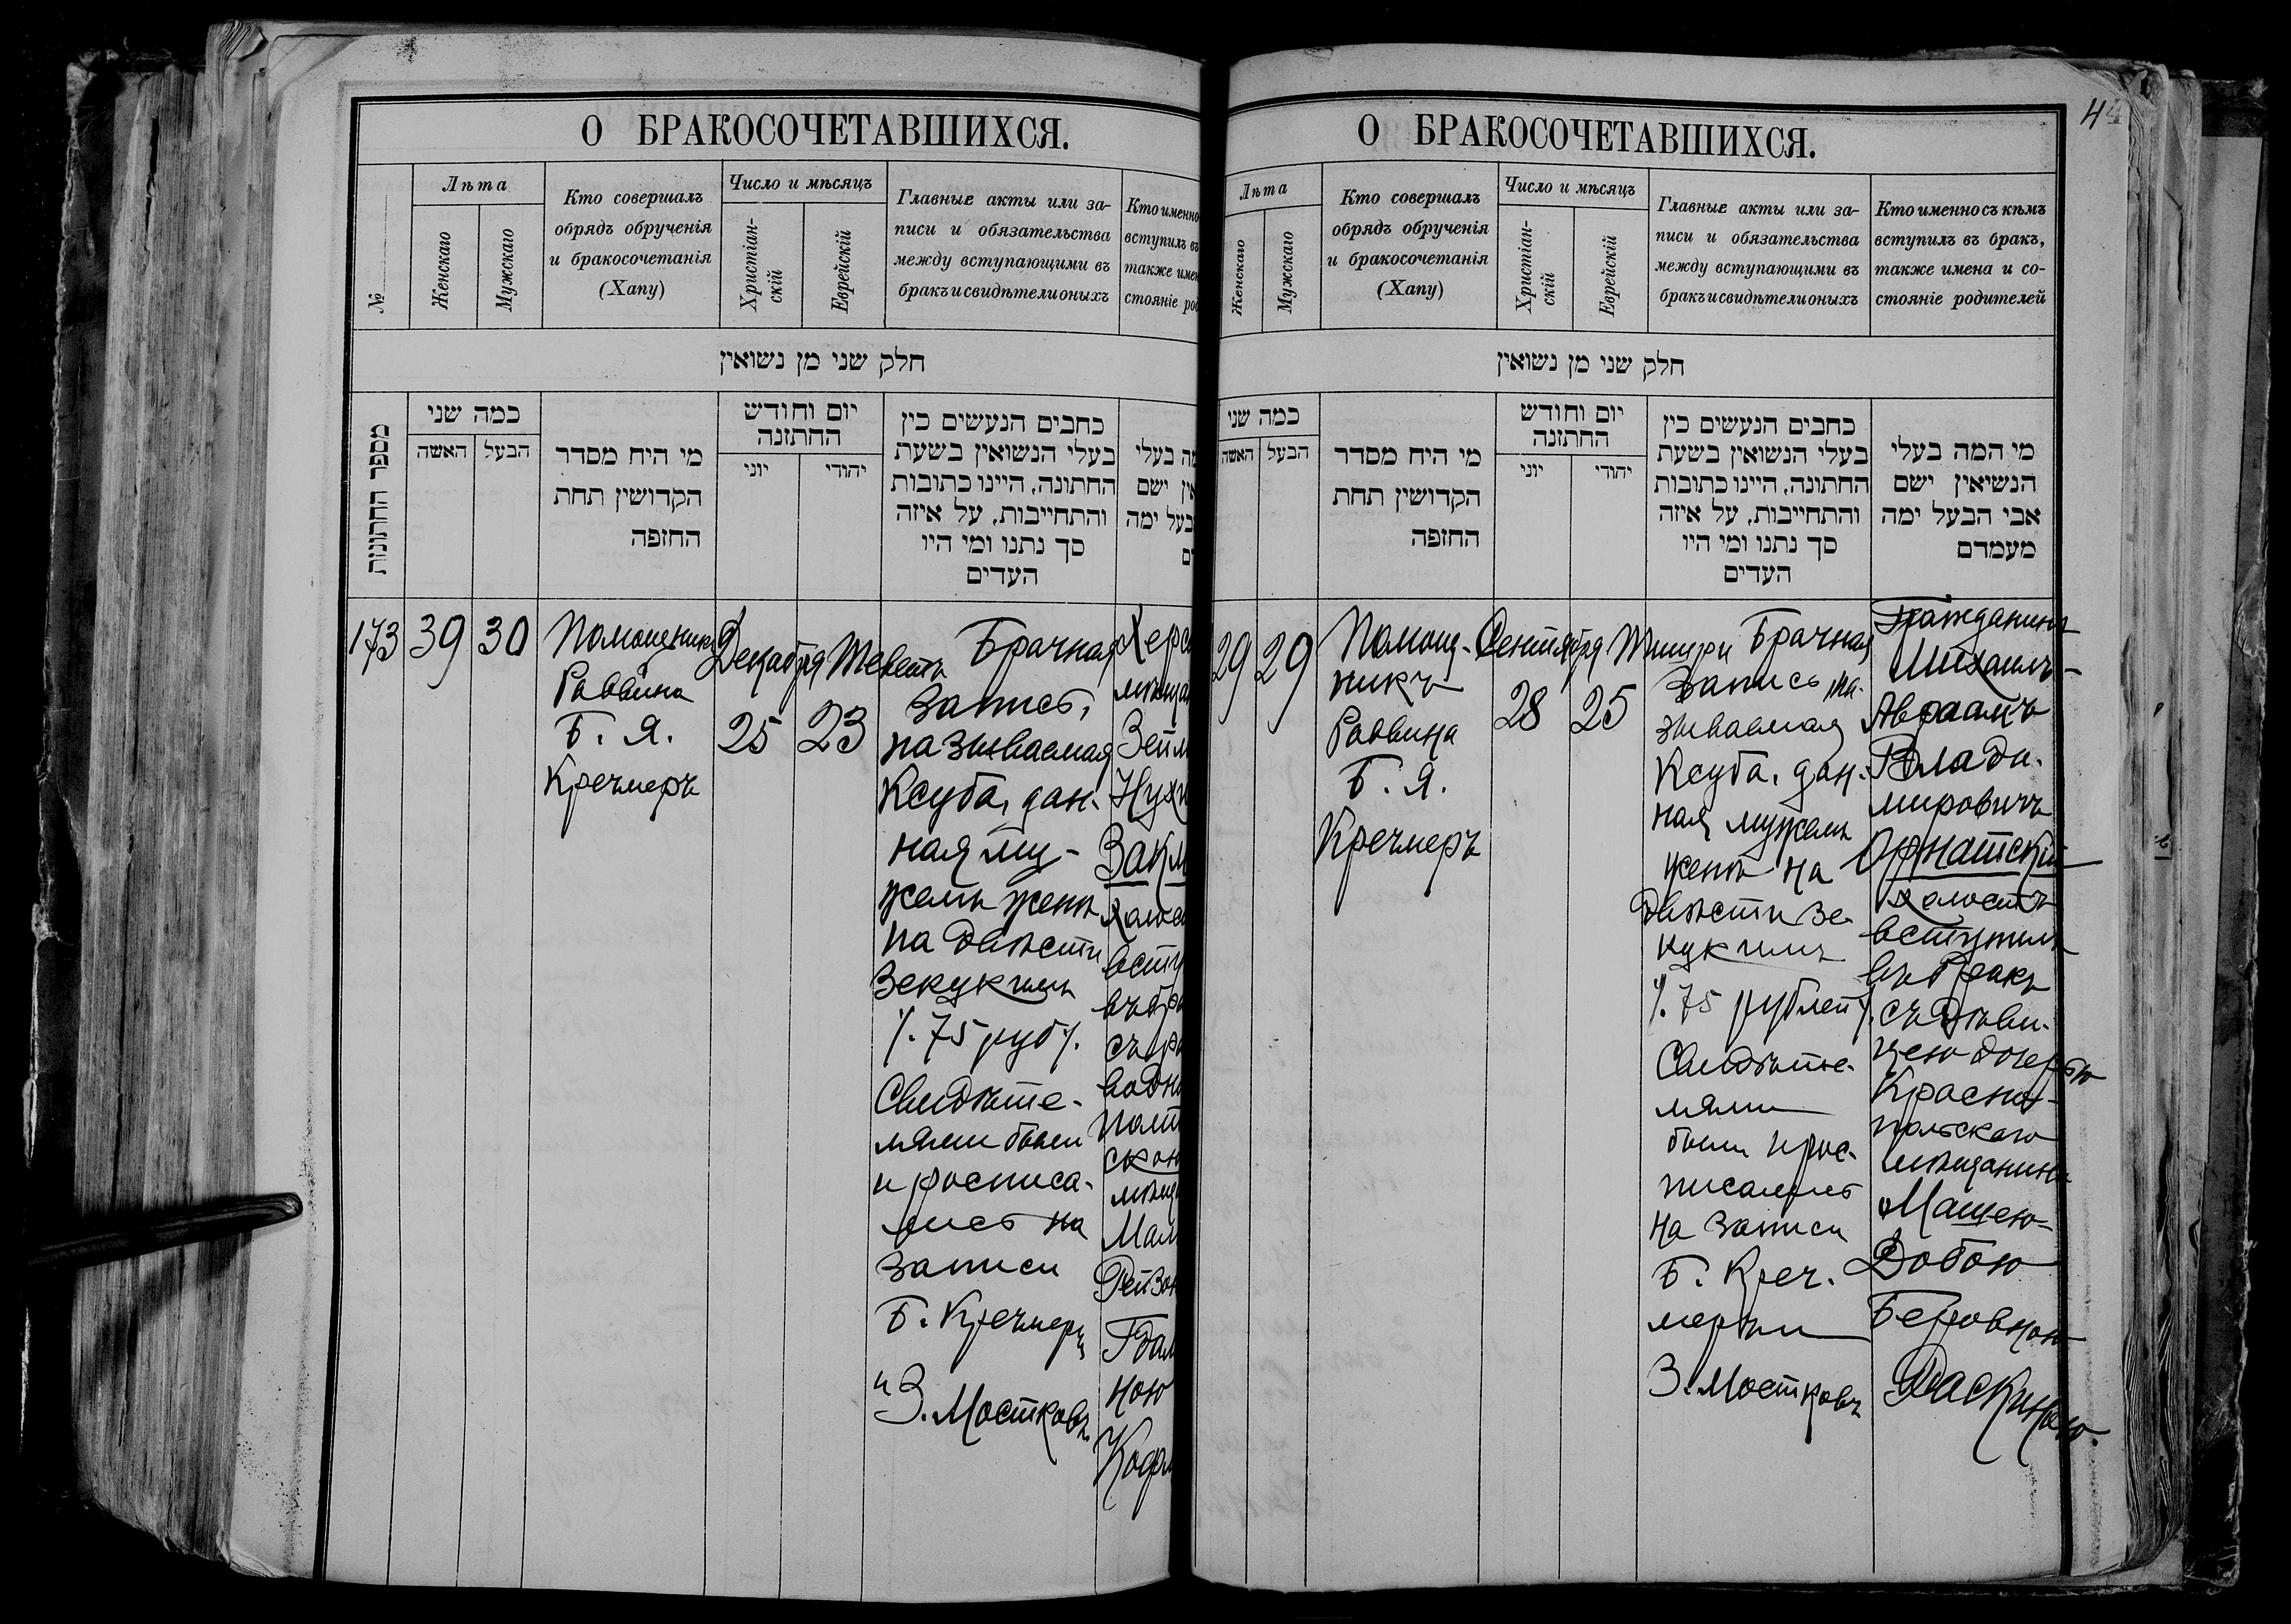 О БРАКОСОЧЕТАВШИХСЯ.
№
Лѣта
Женскаго
Мужскаго
Кто совершалъ
обрядъ обрученія
и бракосочетанія
(Хапу)
Число и мѣсяцъ
Христіан-
скій
Еврейскій
Главные акты или за-
писи и обязательства
между вступающими въ
бракъ и свидѣтели оныхъ
Кто именно
вступилъ въ
также имен
стояніе род
חלק שני מן נשואין
מספר החתונות
כמה שני
האשה
הבעל
מי היה מסדר
הקדושין תחת
החופה
יום וחודש
החתונה
יוני
יהודי
כתבים הנעשים בין
בעלי הנשואין בשעת
החתונה, היינו כתובות
והתחייבות, על איזה
סך נתנו ומי היו
העדים
173
39
30
Помощникъ
Раввина
Б. Я.
Кречмеръ
Декабря
25
Тевета
23
Брачная
запись,
называемая
Ксуба, дан-
ная му-
жемъ женѣ
на двѣсти
зекукимъ
/. 75 руб /.
Свидѣте-
лями были
и росписа-
лись на
записи
Б. Кречмеръ
и З. Мостковъ.
Херс
мѣщан
Зейл
Нух
Закл
Холос
всту
въ бр
съ р
водн
Полт
скою
мѣщ
Мал
Рейзо
Гдал
ною
Кодр
О БРАКОСОЧЕТАВШИХСЯ.
44
Лѣта
Женскаго
Мужскаго
Кто совершалъ
обрядъ обрученія
и бракосочетанія
(Хапу)
Число и мѣсяцъ
Христіан-
скій
Еврейскій
Главные акты или за-
писи и обязательства
между вступающими въ
бракъ и свидѣтели оныхъ
Кто именно съ кѣмъ
вступилъ въ бракъ,
также имена и со-
стояніе родителей
חלק שני מן נשואין
כמה שני
האשה
הבעל
מי היה מסדר
הקדושין תחת
החופה
יום וחודש
החתונה
יוני
יהודי
כתבים הנעשים בין
בעלי הנשואין בשעת
החתונה, היינו כתובות
והתחייבות, על איזה
סך נתנו ומי היו
העדים
מי המה בעלי
הנשיאין ישם
אבי הבעל ימה
מעמדם
29
29
Помощ-
никъ
Раввина
Б. Я.
Кречмеръ
Сентября
28
Тишри
25
Брачная
запись, на-
зываемая
Ксуба, дан-
ная мужемъ
женѣ на
двѣсти зе-
кукимъ
/. 75 рублей /.
Свидѣте-
лями
были и рос-
писались
на записи
Б. Креч-
меръ и
З. Мостковъ
Гражданинъ
Михаилъ-
Авраамъ
Влади-
мировичъ
Орнатскій
холостъ
вступилъ
въ бракъ
съ дѣви-
цею дочерью
Красно-
польскаго
мѣщанина
Машею-
Добою
Беровною
Раскиною.